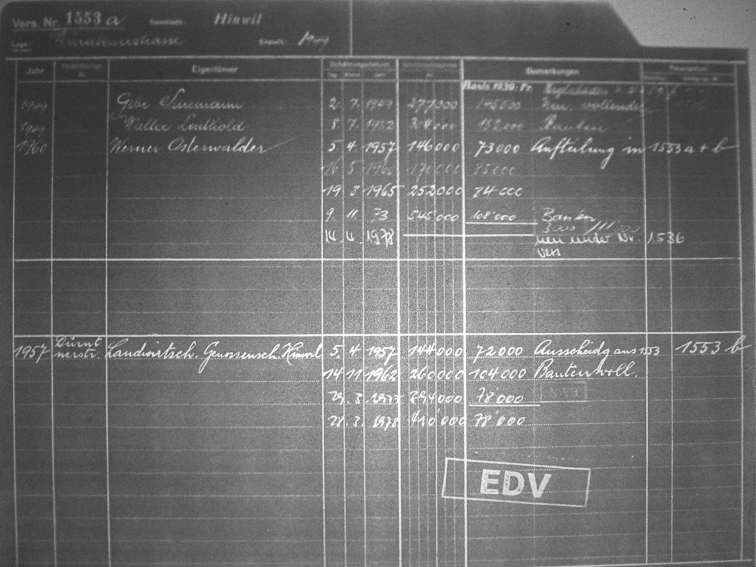 Vers. Nr. 1553 a Gemeinde: Hinwil
Erstellt: 1949
Jahr Eigentümer Schätzungsdatum Bemerkungen
Tag Monat Jahr
Basis 1939: Fr.
1949 2. 7. 1949 277000 145500 Neu. vollendet
1949 Walter Leuthold 8 7. 1952 304000 152000 Bauten
1960 Werner Osterwalder 5 4. 1957 146000 73000 Aufteilung in 1553 a + b
16 5 1960 170000 85000
19 2 1965 252000 84000
9. 11. 73 545'000 108'000 Bauten
14. 4. 1978 neu unter Nr. 1536
Vers
1957 Dürnt
nerstr. Landwirtsch. Genossensch. Hinwil 5. 4. 1957 144000 72000 Ausscheidg aus 1553 1553 b
14 11 1962 260000 104000 Bauten voll.
29. 3. 1973 394000 78'000
28. 3. 1978 410'000 78'000
EDV